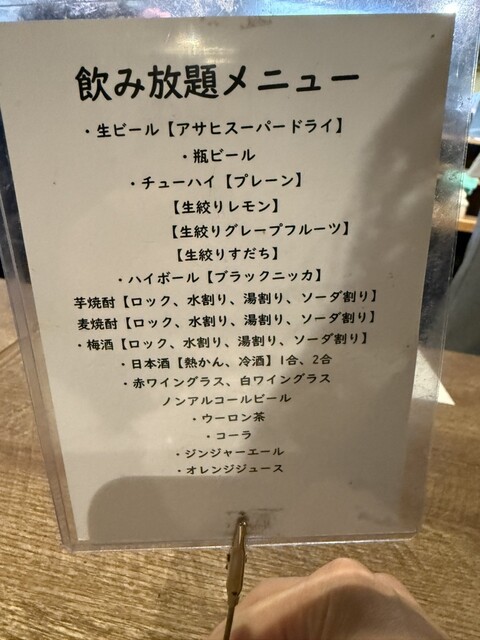 飲み放題メニュー
・生ビール【アサヒスーパードライ】
・瓶ビール
・チューハイ【プレーン】
【生絞りレモン】
【生絞りグレープフルーツ】
【生絞りすだち】
・ハイボール【ブラックニッカ】
芋焼酎【ロック、水割り、湯割り、ソーダ割り】
麦焼酎【ロック、水割り、湯割り、ソーダ割り】
・梅酒【ロック、水割り、湯割り、ソーダ割り】
・日本酒【熱かん、冷酒】1合、2合
・赤ワイングラス、白ワイングラス
ノンアルコールビール
・ウーロン茶
・コーラ
・ジンジャーエール
・オレンジジュース